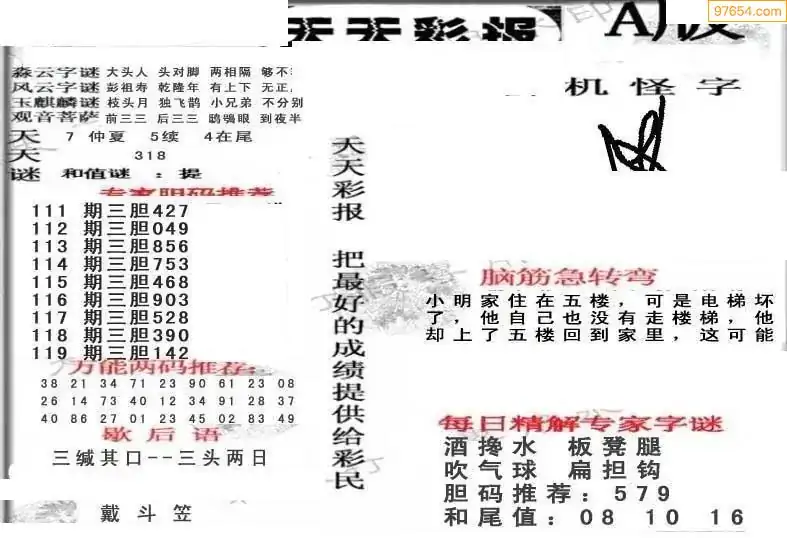 97654.com
天天彩报
A版
森云字谜 大头人 头对脚 两相隔 够不
风云字谜 彭祖寿 乾隆年 有上下 无正
玉麒麟谜 枝头月 独飞鹊 小兄弟 不分别
观音菩萨 前三三 后三三 鸱鸮眼 到夜半
天 7 仲夏 5续 4在尾
天 318
谜 和值谜 : 提
专家胆码推荐
111 期三胆427
112 期三胆049
113 期三胆856
114 期三胆753
115 期三胆468
116 期三胆903
117 期三胆528
118 期三胆390
119 期三胆142
万能两码推荐:
38 21 34 71 23 90 61 23 08
26 14 73 40 12 34 91 28 37
40 86 27 01 23 45 02 83 49
歇后语
三缄其口--三头两日
戴斗笠
天天彩报 把最好的成绩提供给彩民
机怪字
脑筋急转弯
小明家住在五楼，可是电梯坏
了，他自己也没有走楼梯，他
却上了五楼回到家里，这可能
每日精解专家字谜
酒搀水 板凳腿
吹气球 扁担钩
胆码推荐: 579
和尾值: 08 10 16